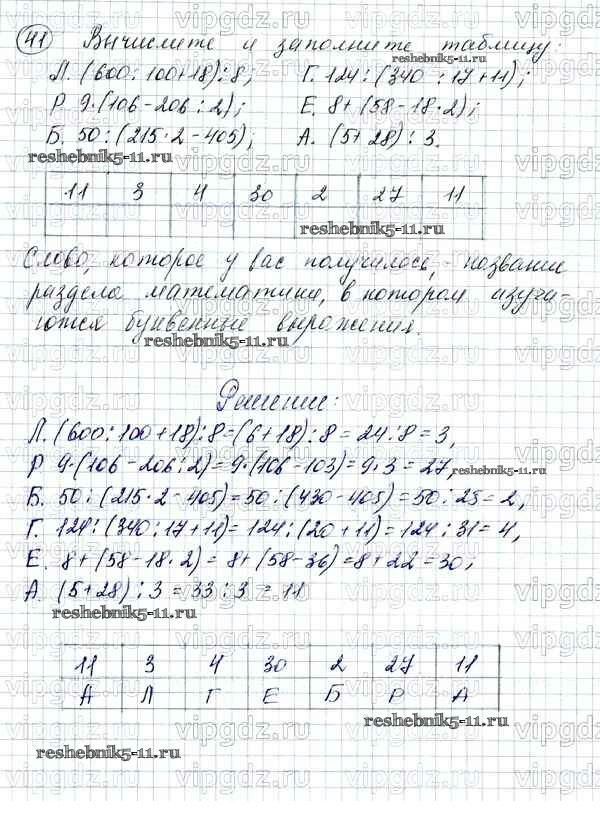 41 Вычислите и заполните таблицу:
Л. (600 : 100 + 18) : 8; Г. 124 : (340 : 17 + 11);
Р 9·(106 - 206 : 2); Е. 8 + (58 - 18·2);
Б. 50 : (215·2 - 405); А. (5 + 28) : 3.
reshebnik5-11.ru
11 3 4 30 2 27 11
reshebnik5-11.ru
Слово, которое у вас получилось, - название
раздела математики, в котором изуча-
ются буквенные выражения.
reshebnik5-11.ru
Решение:
Л. (600 : 100 + 18) : 8 = (6 + 18) : 8 = 24 : 8 = 3,
Р 9·(106 - 206 : 2) = 9·(106 - 103) = 9·3 = 27,
reshebnik5-11.ru
Б. 50 : (215·2 - 405) = 50 : (430 - 405) = 50 : 25 = 2,
Г. 124 : (340 : 17 + 11) = 124 : (20 + 11) = 124 : 31 = 4,
Е. 8 + (58 - 18·2) = 8 + (58 - 36) = 8 + 22 = 30;
А. (5 + 28) : 3 = 33 : 3 = 11
reshebnik5-11.ru
11 3 4 30 2 27 11
А Л Г Е Б Р А
reshebnik5-11.ru
reshebnik5-11.ru
vipgdz.ru